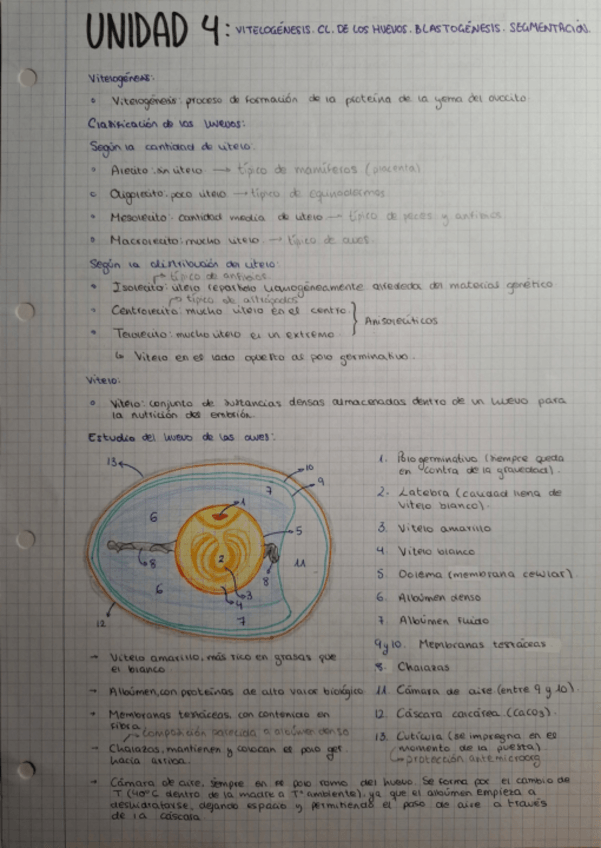 UNIDAD 4: VITELOGÉNESIS. CL. DE LOS HUEVOS. BLASTOGÉNESIS. SEGMENTACIÓN.
Vitelogénesis:
Vitelogénesis: proceso de formación de la proteína de la yema del ovocito
Clasificación de los huevos:
Según la cantidad de vitelo:
Alecito: sin vitelo → típico de mamíferos (placenta)
Oligolecito: poco vitelo → típico de equinodermos
Mesolecito: cantidad media de vitelo → típico de peces y anfibios
Macrolecito: mucho vitelo → típico de aves.
Según la distribución del vitelo:
típico de anfibios
Isolecito: vitelo repartido homogéneamente alrededor del material genético
típico de artrópodos
Centrolecito: mucho vitelo en el centro.
Telolecito: mucho vitelo en un extremo
Anisolecíticos
Vitelo en el lado opuesto al polo germinativo.
Vitelo:
Vitelo: conjunto de sustancias densas almacenadas dentro de un huevo para
la nutrición del embrión.
Estudio del huevo de las aves:
13
10
9
7
1
6
5
2
11
8
8
3
4
6
7
12
1. Polo germinativo (siempre queda
en contra de la gravedad).
2. Latebra (cavidad llena de
vitelo blanco).
3. Vitelo amarillo
4. Vitelo blanco
5. Oolema (membrana celular)
6. Albúmen denso
7. Albúmen fluido
9 y 10. Membranas testáceas
8. Chalazas
11. Cámara de aire (entre 9 y 10).
12. Cáscara calcárea (CaCO3).
13. Cutícula (se impregna en el
momento de la puesta)
protección antimicrob
→ Vitelo amarillo, más rico en grasas que
el blanco
→ Albúmen, con proteínas de alto valor biológico
→ Membranas testáceas, con contenido en
fibra
composición parecida a albúmen denso
→ Chalazas, mantienen y colocan el polo ger.
hacia arriba.
→ Cámara de aire, siempre en el polo romo del huevo. Se forma por el cambio de
T (40°C dentro de la madre a Tª ambiente), ya que el albúmen empieza a
deshidratarse, dejando espacio y permitiendo el paso de aire a través
de la cáscara